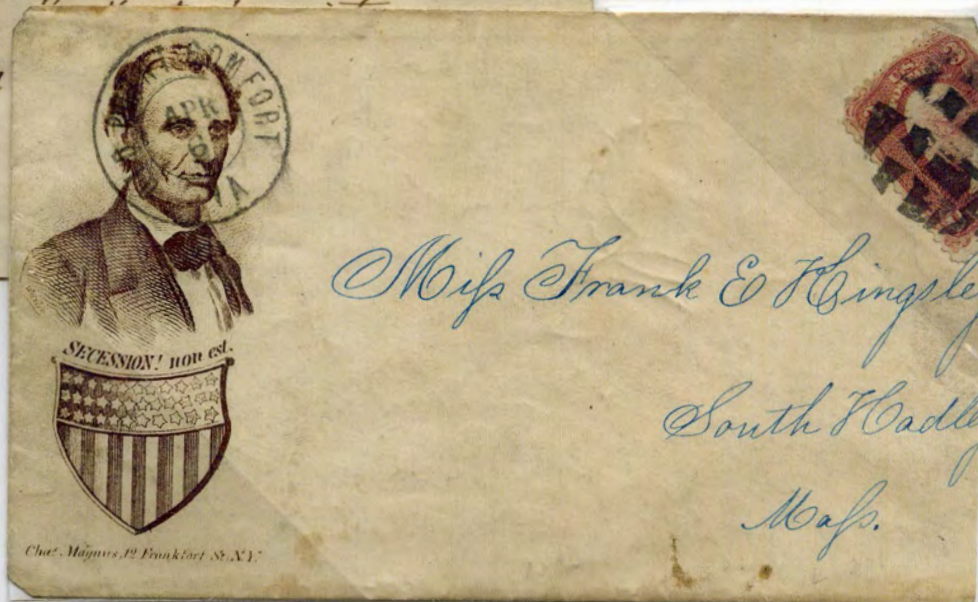 O. POINT COMFORT
APR
VA
SECESSION! non est.
Chas. Magnus, 12 Frankfort St. N.Y.
Miſs Frank E Kingsley
South Hadley
Maſs.